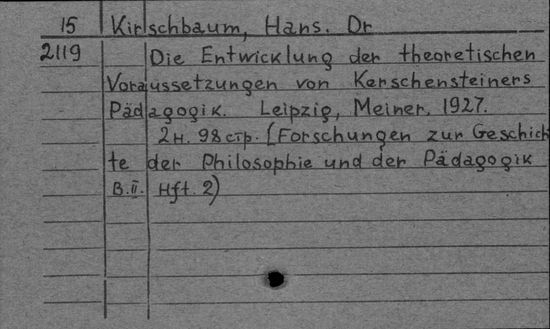 15 Kirschbaum, Hans. Dr
2119 Die Entwicklung der theoretischen
Voraussetzungen von Kerschensteiners
Pädagogik. Leipzig, Meiner, 1927.
2н. 98 стр. (Forschungen zur Geschich
te der Philosophie und der Pädagogik
B. II. Hft. 2)